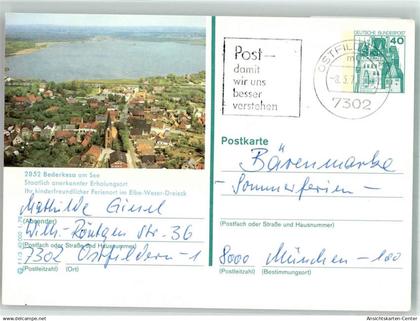 Post–
damit
wir uns
besser
verstehen
OSTFILD
-8.5.7
7302
DEUTSCHE BUNDESPOST
40
2852 Bederkesa am See
Staatlich anerkannter Erholungsort
Ihr kinderfreundlicher Ferienort im Elbe-Weser-Dreieck
Mathilde Giesel
(Absender)
Wilh.-Röntgen Str. 36
(Postfach oder Straße und Hausnummer)
7302 Ostfildern-1
(Postleitzahl) (Ort)
Postkarte
Bärenmarke
-Sommerferien-
(Postfach oder Straße und Hausnummer)
8000 München-100
(Postleitzahl) (Bestimmungsort)
AnsichtsKarten-Center